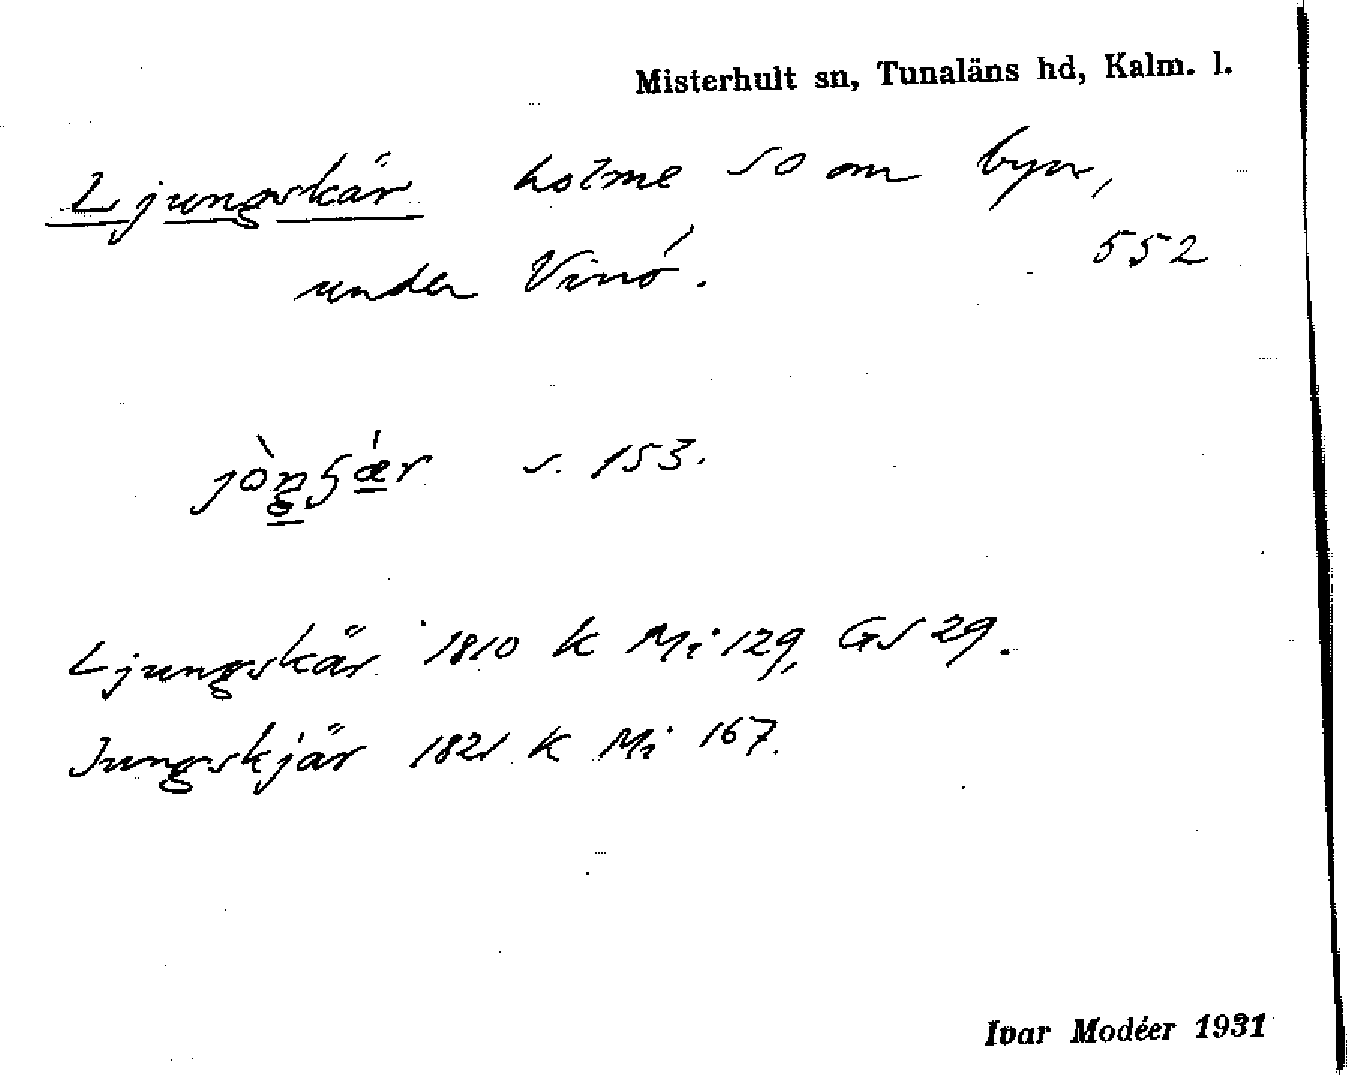 Misterhult sn, Tunaläns hd, Kalm. l.
Ljungskär holme SO om byn,
under Vinö. 552
s. 153.
Ljungskär 1810 k Mi 129, GS 29.
Jungskjär 1821 k Mi 167.
Ivar Modéer 1931